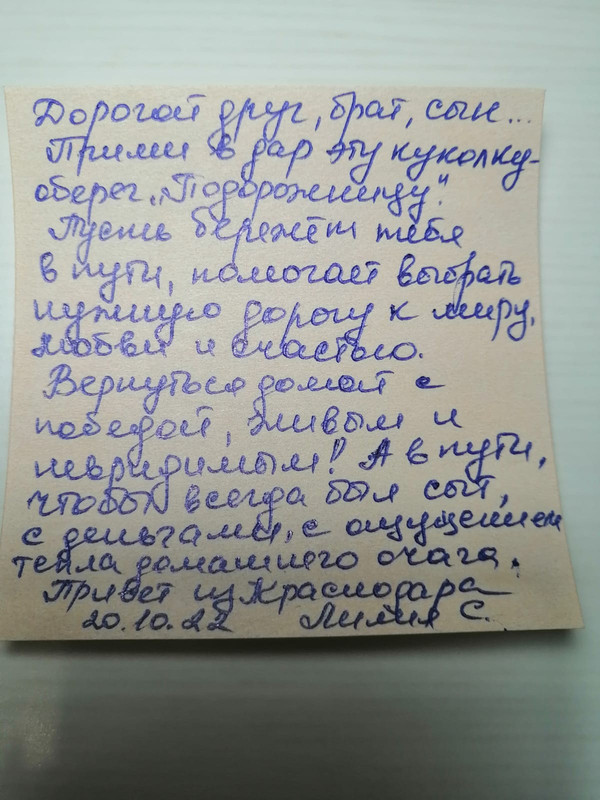 Дорогой друг, брат, сын...
Прими в дар эту куколку-
оберег „Подорожницу".
Пусть бережёт тебя
в пути, помогает выбрать
нужную дорогу к миру,
любви и счастью.
Вернуться домой с
победой, живым и
невридимым! А в пути,
чтобы всегда был сыт,
с деньгами, с ощущением
тепла домашнего очага.
Привет из Краснодара
20.10.22 Лилия С.